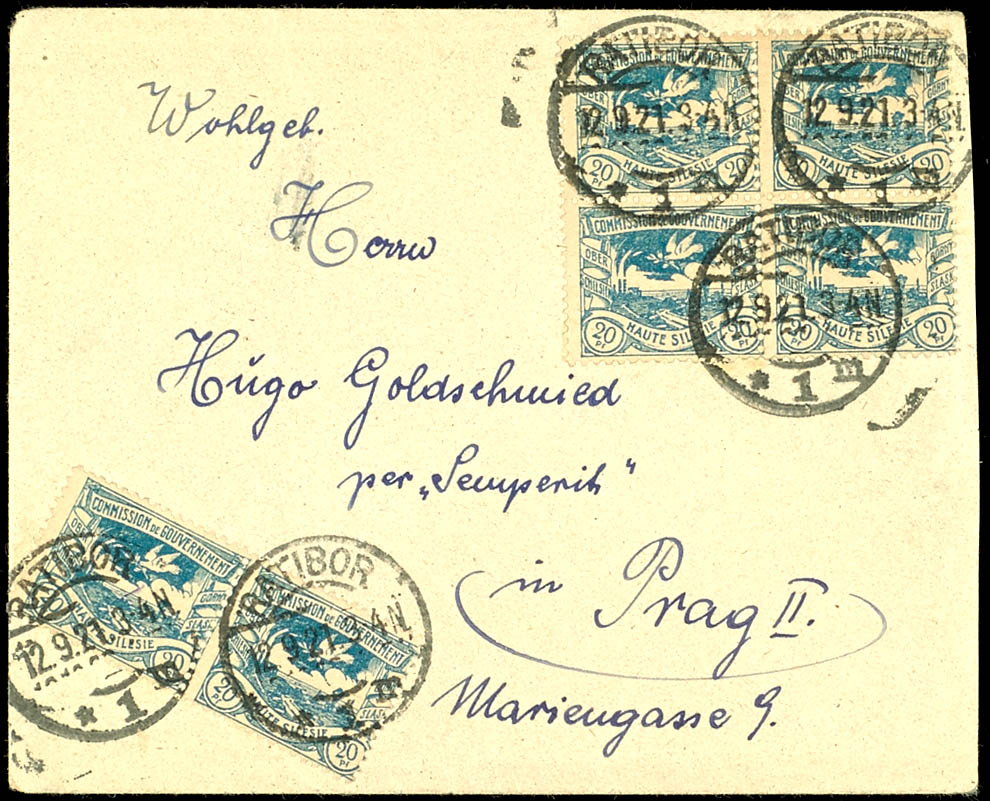 Wohlgeb.
Herrn
Hugo Goldschmied
per „Semperit“
in Prag II.
Mariengasse 9.
COMMISSION DE GOUVERNEMENT
OBER
GÓRNY
HAUTE SILESIE
20 20
RATIBOR
12.9.21.3-4N.
* 1 m
COMMISSION DE GOUVERNEMENT
GÓRNY
ŚLĄSK
HAUTE SILESIE
20 20
RATIBOR
12.9.21.3-4N.
* 1 m
COMMISSION DE GOUVERNEMENT
OBER
SCHLESIEN
ŚLĄSK
HAUTE SILESIE
20 Pf 20 Pf
COMMISSION DE GOUVERNEMENT
GÓRNY
ŚLĄSK
HAUTE SILESIE
20 Pf 20 Pf
RATIBOR
12.9.21.3-4N.
* 1 m
COMMISSION DE GOUVERNEMENT
OBER
GÓRNY
ŚLĄSK
SILESIE
20
RATIBOR
12.9.21.3-4N.
* 1
COMMISSION DE GOUVERNEMENT
GÓRNY
ŚLĄSK
HAUTE SILESIE
20 Pf 20 Pf
RATIBOR
12.9.21. 3-4N.
* 1 m